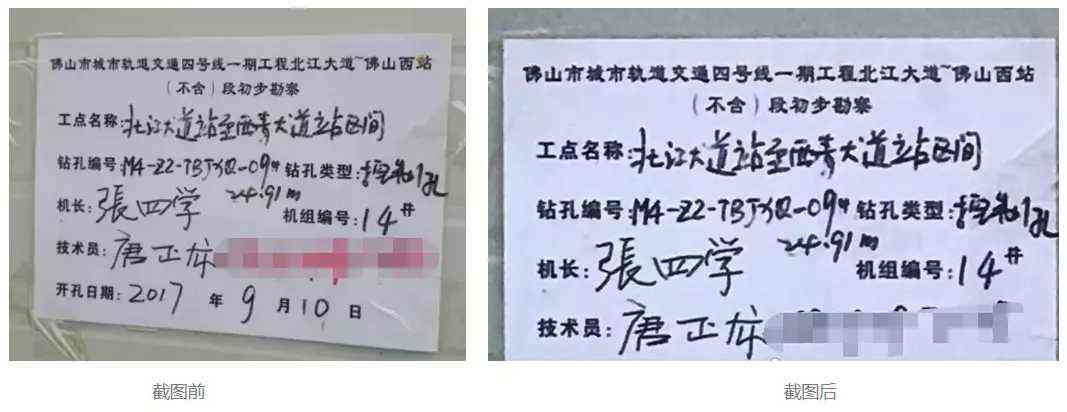 佛山市城市轨道交通四号线一期工程北江大道~佛山西站
(不含)段初步勘察
工点名称:北江大道站至西青大道立站区间
钻孔编号:M4-Z2-TBJXQ-09# 钻孔类型:控制孔
24.91m
机长:張四学 机组编号:14#
技术员:唐正龙
开孔日期:2017年9月10日
佛山市城市轨道交通四号线一期工程北江大道~佛山西站
(不含)段初步勘察
工点名称:北江大道站至西青大道立站区间
钻孔编号:M4-Z2-TBJXQ-09# 钻孔类型:控制孔
24.91m
机长:張四学 机组编号:14#
技术员:唐正龙
截图前
截图后